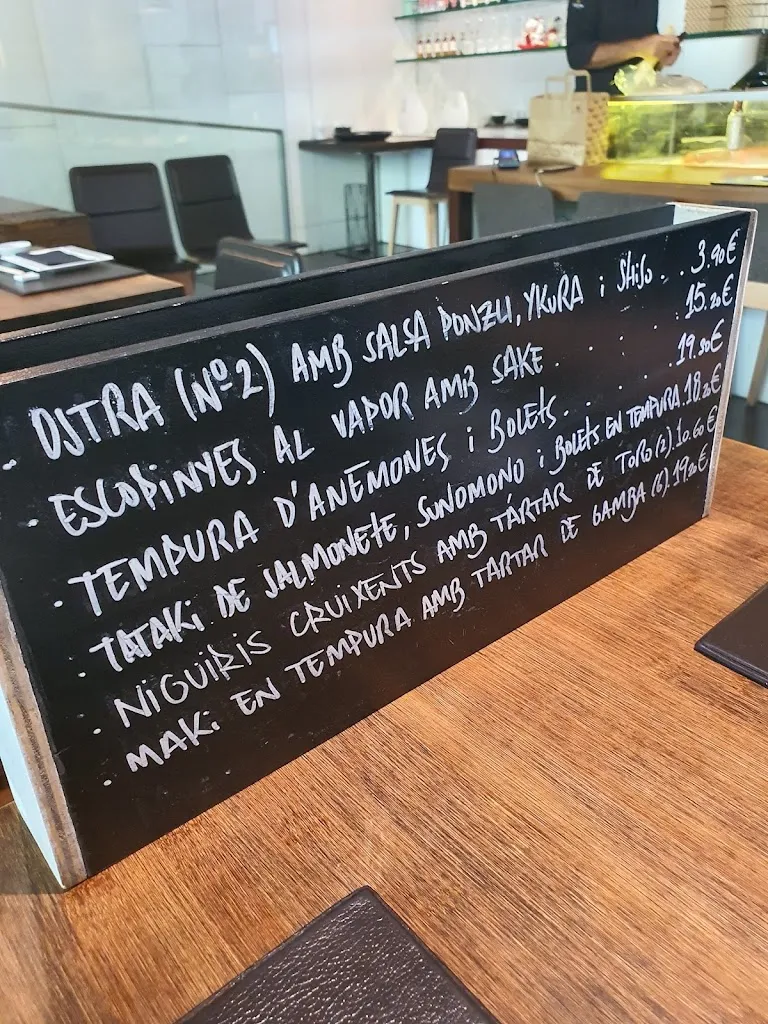 · OSTRA (Nº2) AMB SALSA PONZU, YKURA i SHiSO . . 3.90€
· ESCOPINYES AL VAPOR AMB SAKE . . . . 15.20€
· TEMPURA D'ANEMONES i BOLETS . . . . 19.30€
· TATAKi DE SALMONETE, SUNOMONO i BOLETS EN TEMPURA. 18.20€
· NIGUIRIS CRUIXENTS AMB TÁRTAR DE TORO (2) 10.60€
· MAKi EN TEMPURA AMB TÁRTAR DE GAMBA (6). 19.20€